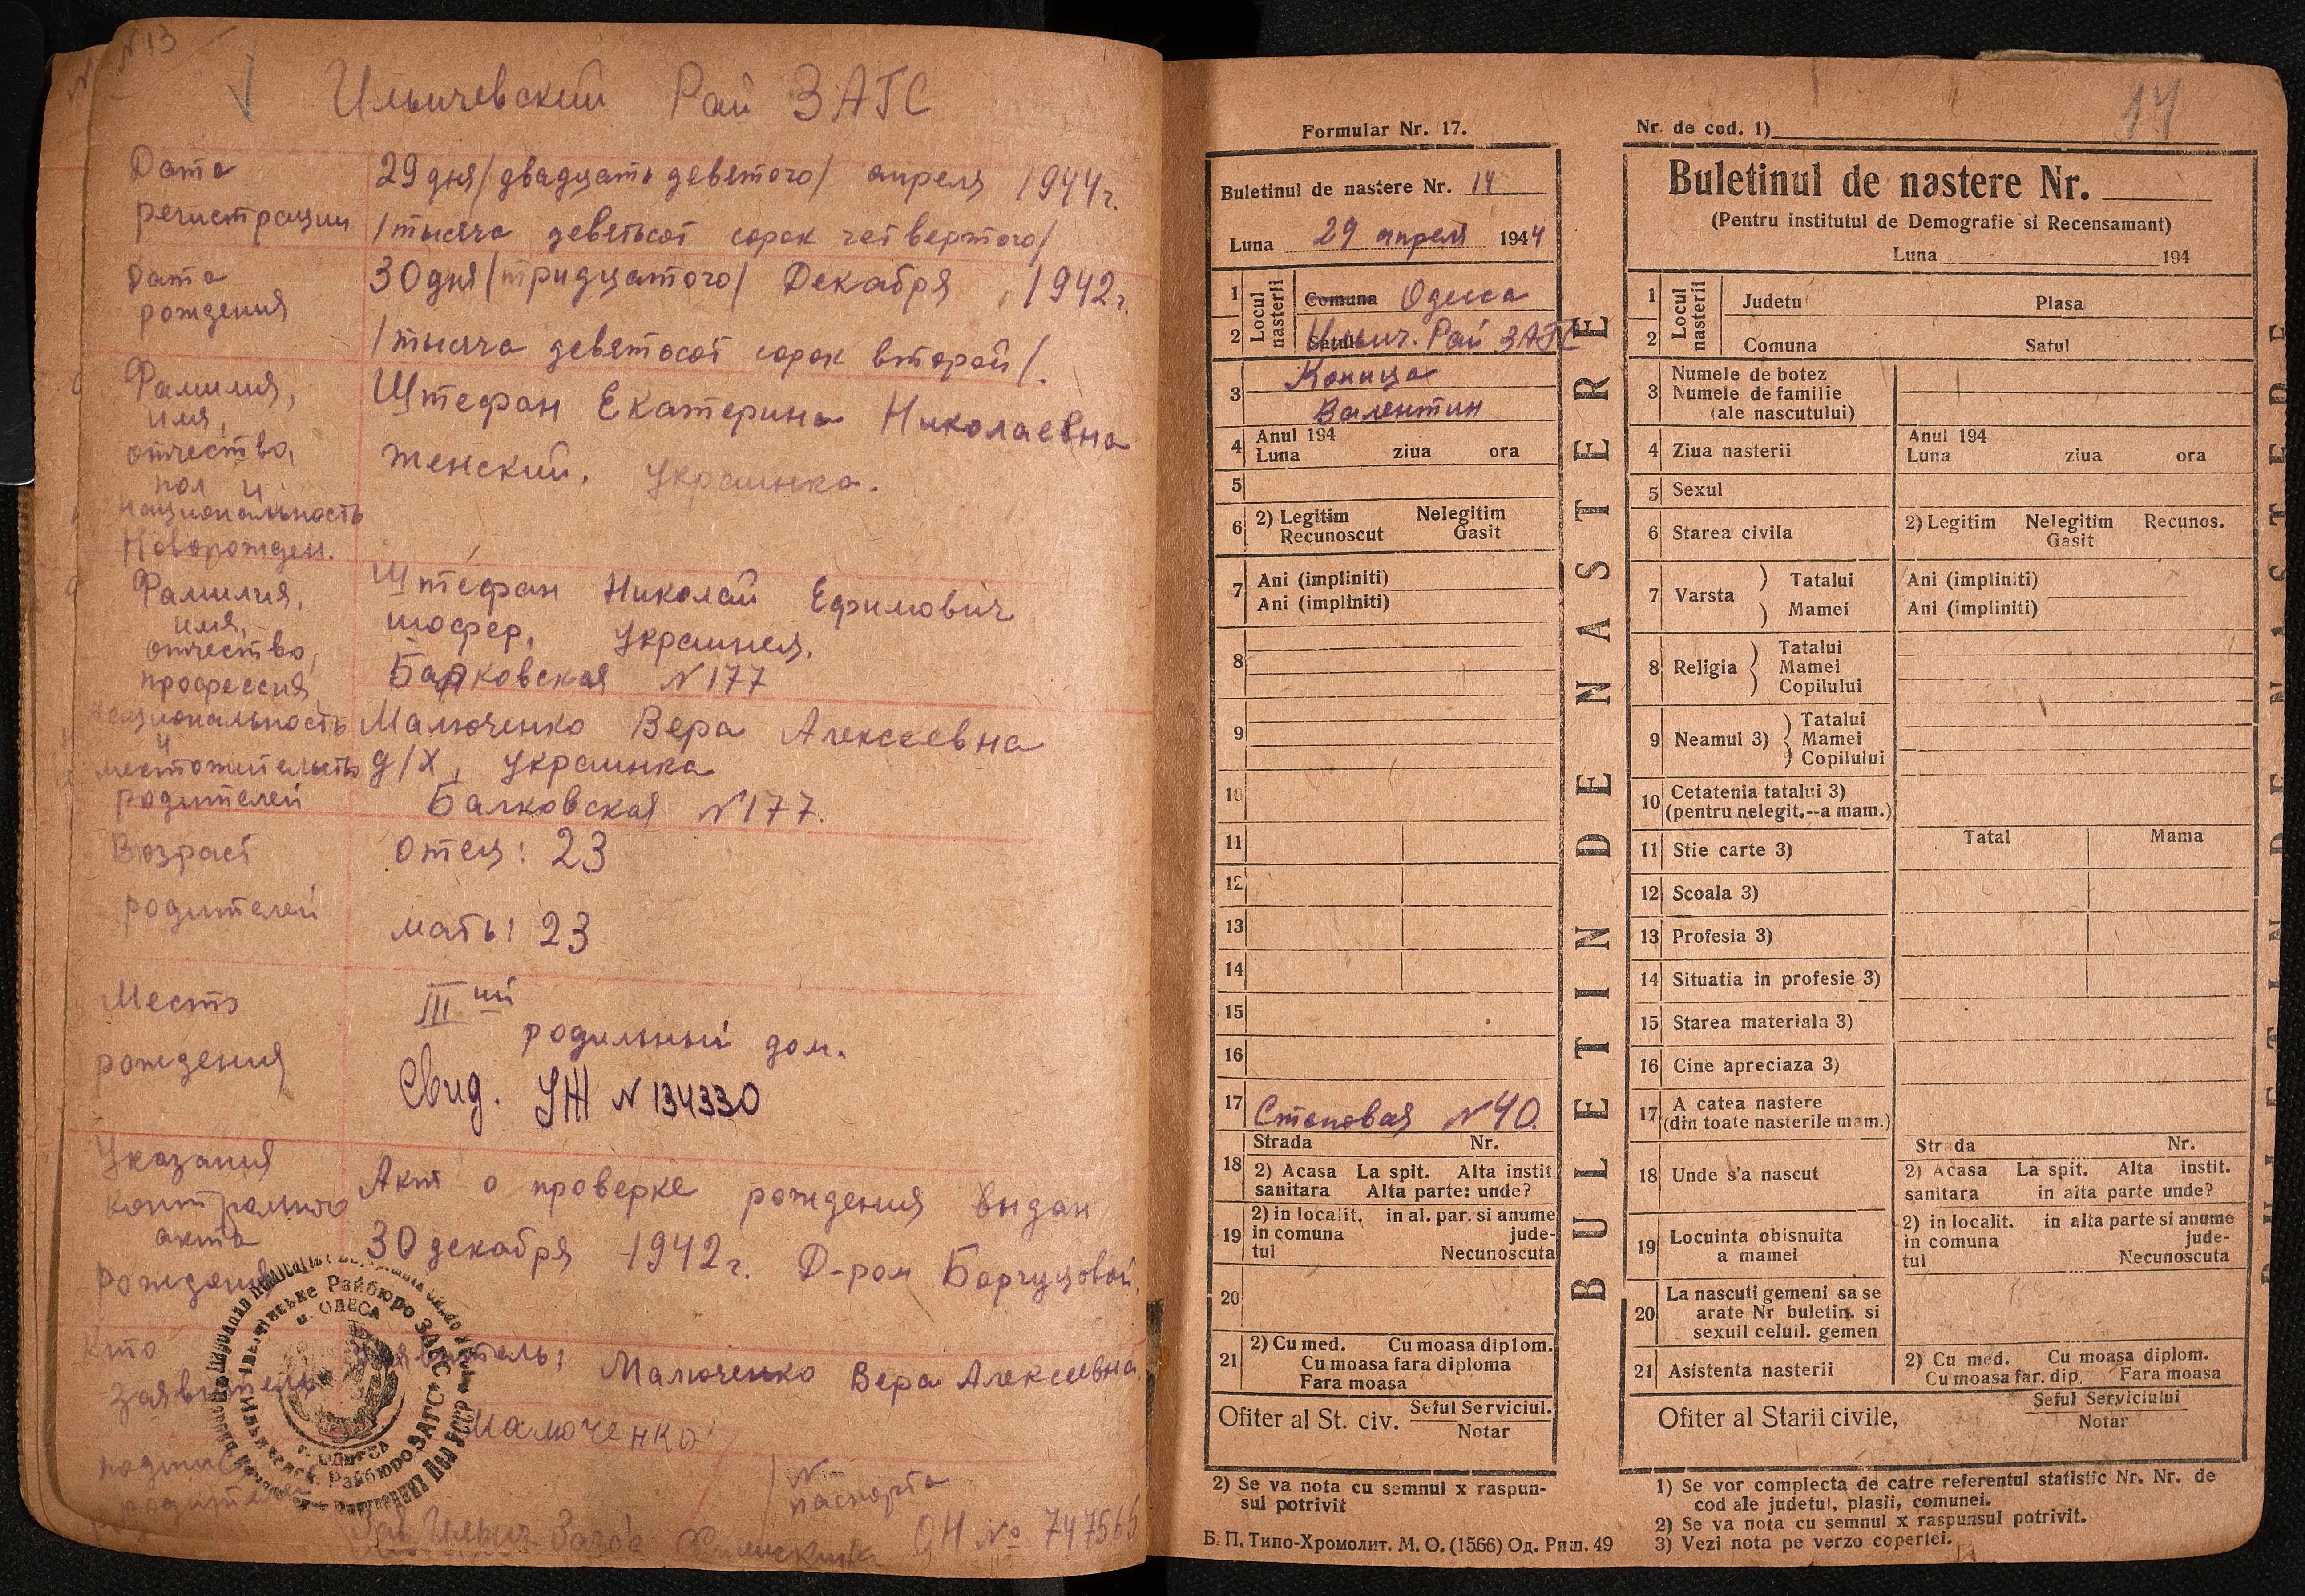 N 13
Ильичевский Рай ЗАГС
Дата регистрации
29 дня /двадцать девятого/ апреля 1944 г.
/тысяча девятьсот сорок четвертого/
Дата рождения
30 дня /тридцатого/ Декабря 1942 г.
/тысяча девятьсот сорок второй/.
Фамилия, имя, отчество, пол и национальность Новорожден.
Штефан Екатерина Николаевна
женский, украинка.
Фамилия, имя, отчество, профессия национальность и местожительство родителей
Штефан Николай Ефимович
шофер, украинец.
Балковская N 177
Малюченко Вера Алексеевна
д/х, украинка
Балковская N 177.
Возраст родителей
отец: 23
мать: 23
Место рождения
III ий
родильный дом.
Свид. УЖ N 134330
Указания контрольного акта рождения
Акт о проверке рождения выдан
30 декабря 1942 г. Д-ром
Кто заявитель
Заявитель: Малюченко Вера Алексеевна
Малюченко
N паспорта
Райбюро ЗАГС
м. ОДЕСА
г. Одесса
Райбюро ЗАГС
Зав. Ильич. Загса
ОН №
Formular Nr. 17.
Buletinul de nastere Nr. 14
Luna 29 апреля 1944
1 Locul nasterii Comuna Одесса
2 Satul Ильич. Рай ЗАГС
3 Коница
Валентин
4 Anul 194
Luna ziua ora
5
6 2) Legitim Nelegitim
Recunoscut Gasit
7 Ani (impliniti)
Ani (impliniti)
8
9
10
11
12
13
14
15
16
17 Степовая N 40.
Strada Nr.
18 2) Acasa La spit. Alta instit
sanitara Alta parte: unde?
19 2) in localit. in al. par. si anume
in comuna jude-
tul Necunoscuta
20
21 2) Cu med. Cu moasa diplom.
Cu moasa fara diploma
Fara moasa
Ofiter al St. civ. Seful Serviciul.
Notar
2) Se va nota cu semnul x raspun-
sul potrivit
Б. П. Типо-Хромолит. М. О. (1566) Од. Риш. 49
BULETIN DE NASTERE
14
Nr. de cod. 1)
Buletinul de nastere Nr.
(Pentru institutul de Demografie si Recensamant)
Luna 194
1 Locul nasterii Judetu Plasa
2 Comuna Satul
3 Numele de botez
Numele de familie
(ale nascutului)
4 Ziua nasterii Anul 194
Luna ziua ora
5 Sexul
6 Starea civila 2) Legitim Nelegitim Recunos.
Gasit
7 Varsta Tatalui Ani (impliniti)
Mamei Ani (impliniti)
8 Religia Tatalui
Mamei
Copilului
9 Neamul 3) Tatalui
Mamei
Copilului
10 Cetatenia tatalui 3)
(pentru nelegit.--a mam.)
11 Stie carte 3) Tatal Mama
12 Scoala 3)
13 Profesia 3)
14 Situatia in profesie 3)
15 Starea materiala 3)
16 Cine apreciaza 3)
17 A catea nastere
(din toate nasterile mam.)
18 Unde s'a nascut Strada Nr.
2) Acasa La spit. Alta instit.
sanitara in alta parte unde?
19 Locuinta obisnuita
a mamei
2) in localit. in alta parte si anume
in comuna jude-
tul Necunoscuta
20 La nascuti gemeni sa se
arate Nr buletin. si
sexuil celuil. gemen
21 Asistenta nasterii 2) Cu med. Cu moasa diplom.
Cu moasa far. dip. Fara moasa
Ofiter al Starii civile, Seful Serviciului
Notar
1) Se vor complecta de catre referentul statistic Nr. Nr. de
cod ale judetul, plasii, comunei.
2) Se va nota cu semnul x raspunsul potrivit.
3) Vezi nota pe verzo copertei.